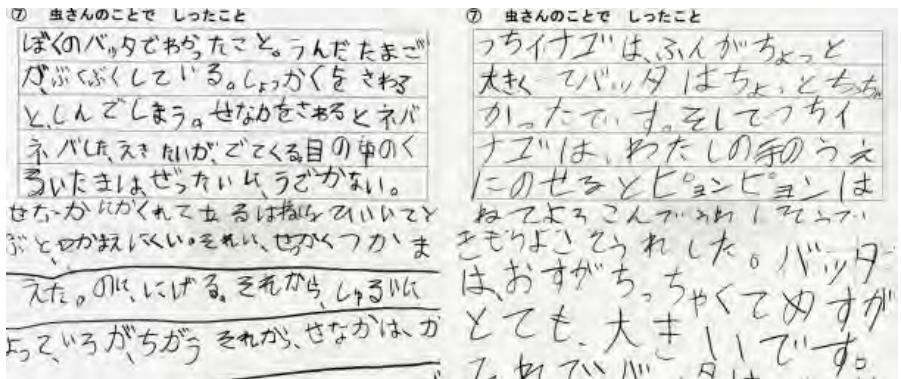 ⑦ 虫さんのことで しったこと
ぼくのバッタでわかったこと。うんだたまご
が、ぶくぶくしている。しょっかくをさわる
と、しんでしまう。せなかをさわるとネバ
ネバした、えきたいが、でてくる。目の中のく
ろいたまは、ぜったいに、うごかない。
せなかにかくれている はねを ひいて
ぶと、つかまえにくい。それに、せっかくつかま
えた。のに、にげる。それから、しゅるいに
よって、いろが、ちがう それから、せなかは、か
⑦ 虫さんのことで しったこと
つちイナゴは、ふんがちょっと
大きくてバッタはちょっとちっちゃ
かったです。そしてつちイ
ナゴは、わたしの手のうえ
にのせるとピョンピョンは
ねてよろこんで
きもちよさそうれした。バッタ
は、おすがちっちゃくてめすが
とても、大きいです。